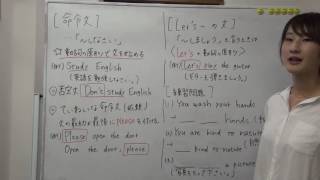 [命令文]
「〜しなさい。」
☆動詞の原形で文を始める
(例) Study English
(英語を勉強しなさい。)
否定文 Don't study English
ていねいな命令文(依頼)
文の最初か最後にpleaseを付ける
(例) Please open the door.
Open the door, please
[Let's〜の文]
「〜しましょう」
Let's + 動詞の原形
(例) Let's play the guitar
(ギターを弾きましょう。)
[練習問題]
(1) You wash your hands
→ hands (
(2) You are kind to nature
→ kind to nature (
(3)
a picture